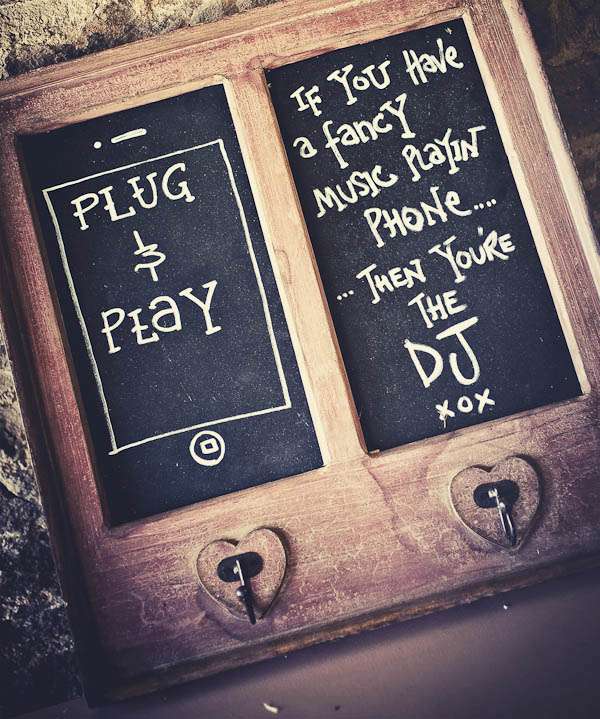 PLUG
&
PLAY
IF YOU HAVE
a fancy
MUSIC PLAYIN
PHONE....
...THEN YOU'RE
THE
DJ
xox